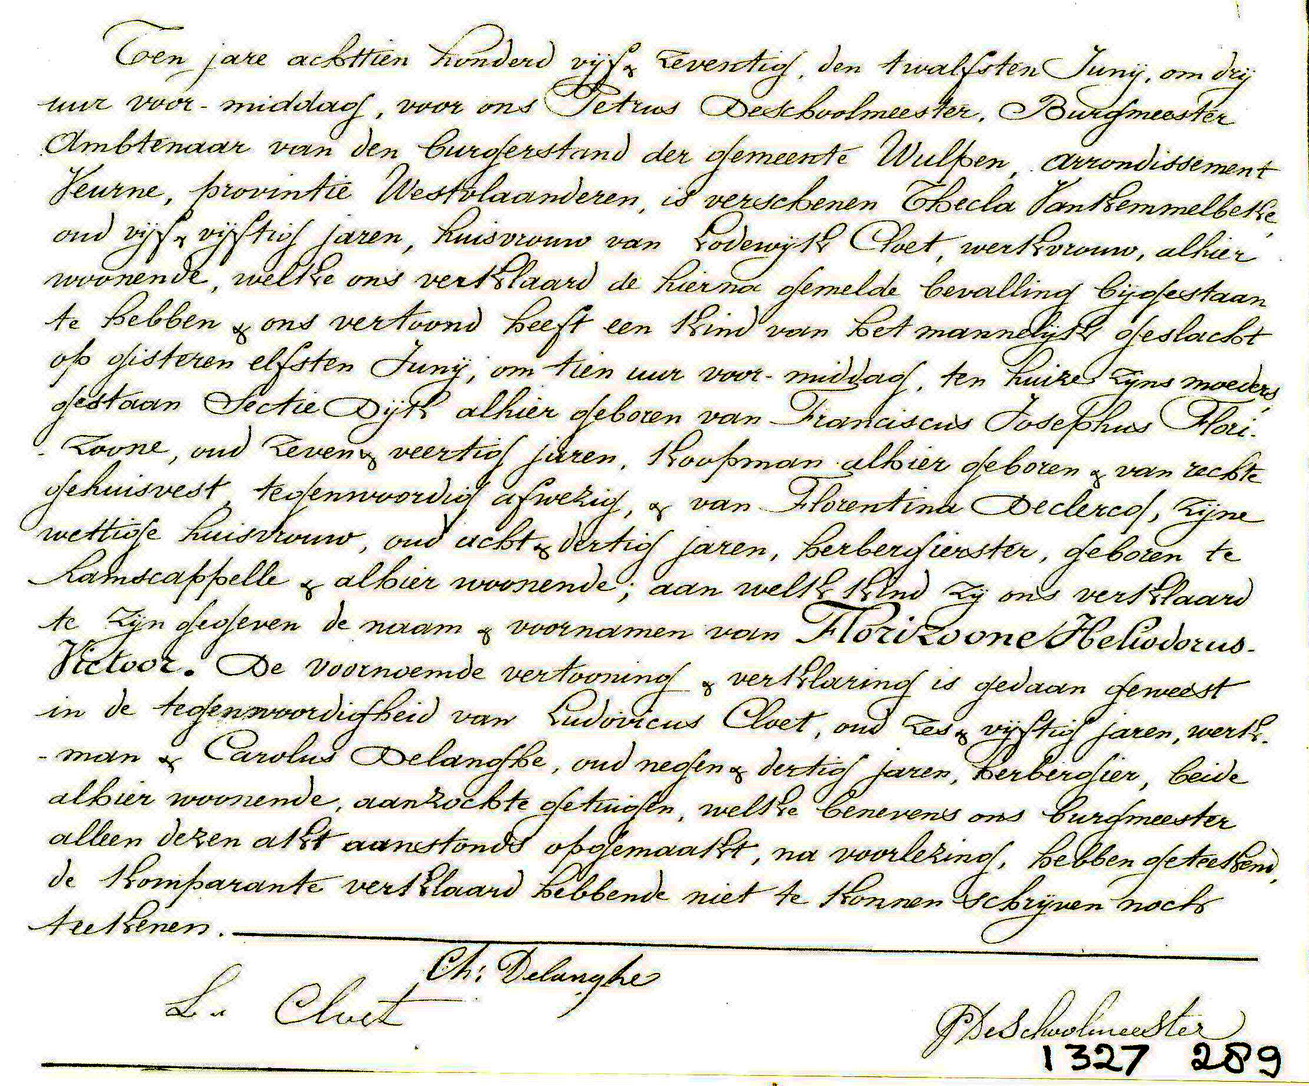 Ten jare achttien honderd vijf & zeventig, den twalfsten Junij, om drij
uur voor-middag, voor ons Petrus Deschoolmeester, Burgmeester
Ambtenaar van den burgerstand der gemeente Wulpen, arrondissement
Veurne, provintie Westvlaanderen, is verschenen Thecla Vankemmelbeke,
oud vijf & vijftig jaren, huisvrouw van Lodewijk Cloet, werkvrouw, alhier
woonende, welke ons verklaard de hierna gemelde bevalling bijgestaan
te hebben & ons vertoond heeft een kind van het mannelijk geslacht
op gisteren elfsten Junij, om tien uur voor-middag, ten huize zijns moeders,
gestaan Sectie Dijk alhier geboren van Franciscus Josephus Flori-
-zoone, oud zeven & veertig jaren, koopman alhier geboren & van rechte
gehuisvest, tegenwoordig afwezig, & van Florentina Declercq, zijne
wettige huisvrouw, oud acht & dertig jaren, herbergierster, geboren te
Ramscappelle & alhier woonende; aan welk kind zij ons verklaard
te zijn gegeven de naam & voornamen van Florizoone Heliodorus-
Victoor. De voornoemde vertooning & verklaring is gedaan geweest
in de tegenwoordigheid van Ludovicus Cloet, oud zes & vijftig jaren, werk-
-man & Carolus Delanghe, oud negen & dertig jaren, herbergier, beide
alhier woonende, aanzochte getuigen, welke benevens ons burgmeester
alleen dezen akt aanstonds opgemaakt, na voorlezing, hebben geteekend,
de komparante verklaard hebbende niet te konnen schrijven noch
teekenen.
Ch: Delanghe
L. Cloet
P Deschoolmeester
1327 289